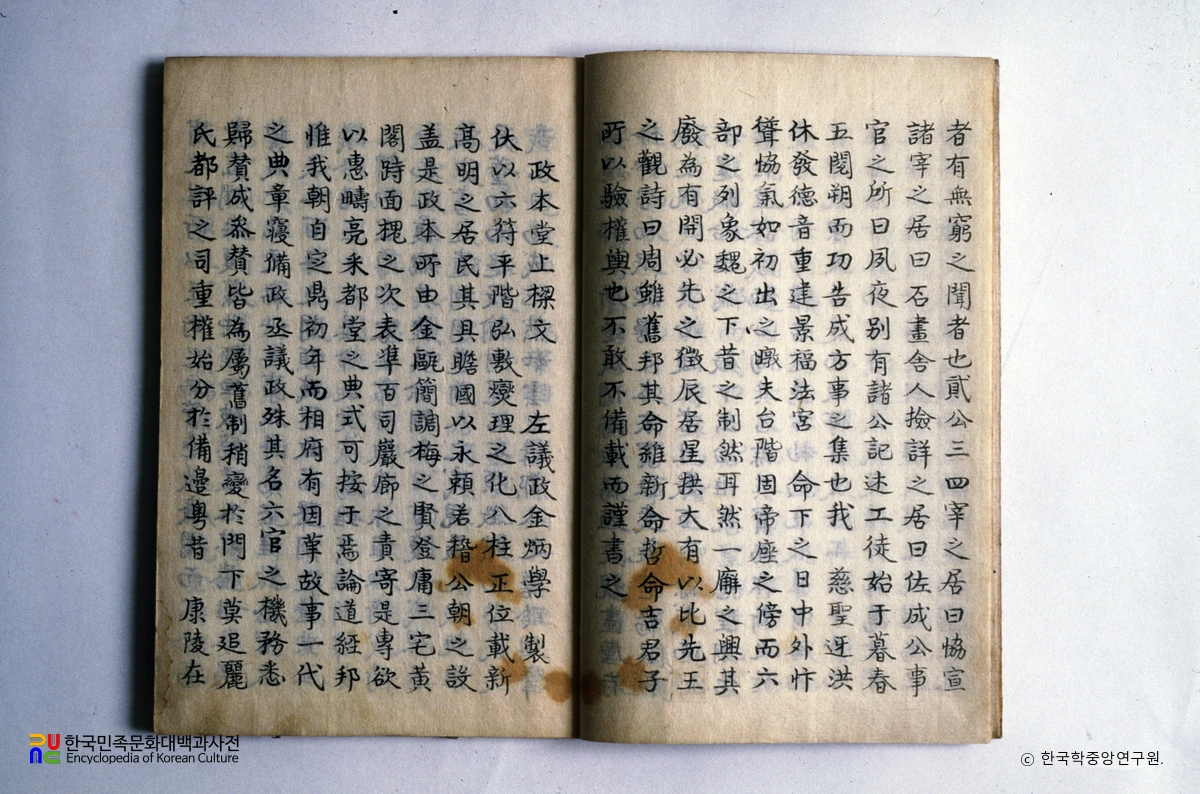 者有無窮之聞者也貳公三四宰之居曰恊宣
諸宰之居曰石畫舍人撿詳之居曰佐成公事
官之所曰夙夜别有諸公記述工徒始于暮春
五閱朔而功告成方事之集也我 慈聖迓洪
休發德音重建景福法宮 命下之日中外忭
聳恊氣如初出之暾夫台階因帝座之傍而六
部之列象魏之下昔之制然耳然一廨之興其
廢為有開必先之徵辰居星拱大有以比先王
之觀詩曰周雖舊邦其命維新命哲命吉君子
所以驗權輿也不敢不備載而謹書之
政本堂上樑文 左議政金炳學 製
伏以六符平階弘敷燮理之化八柱正位載新
高明之居民其具瞻國以永賴若稽公朝之設
盖是政本所由金甌簡調梅之賢登庸三宅黃
閣時面槐之次表準百司巖廊之責寄是專欲
以惠疇亮采都堂之典式可按于焉論道經邦
惟我朝自定鼎初年而相府有因革故事一代
之典章寢備政丞議政殊其名六官之機務悉
歸贊成叅贊皆為屬舊制稍變於門下莫追麗
氏都評之司重權始分於備邊粤昔 康陵在
한국민족문화대백과사전
Encyclopedia of Korean Culture
ⓒ 한국학중앙연구원.